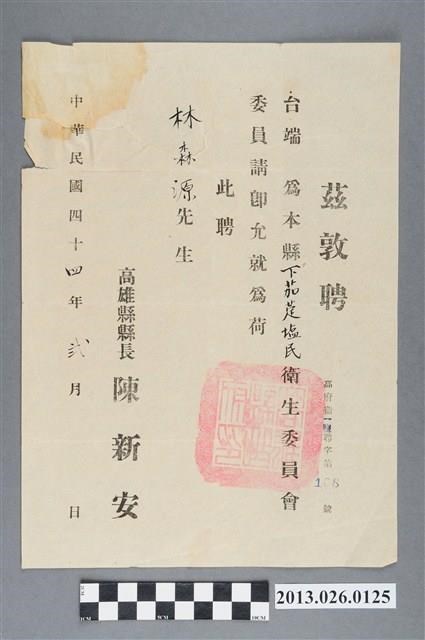 茲敦聘
高府衛一鹽聘字第108號
台端為本縣下茄萣塩民衛生委員會
委員請卽允就為荷
此聘
林森源先生
高雄縣縣長陳新安
中華民國四十四年弐月　日
2013.026.0125